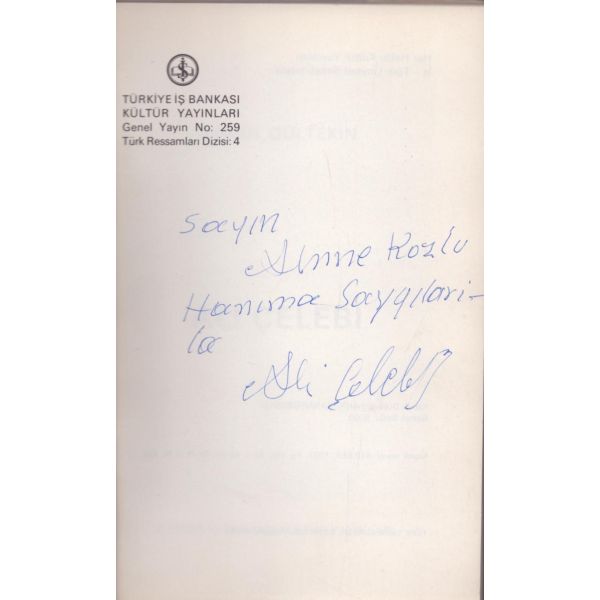 TÜRKİYE İŞ BANKASI
KÜLTÜR YAYINLARI
Genel Yayın No: 259
Türk Ressamları Dizisi: 4
GÜLTEKİN
Sayın
Kozlu
Hanıma Saygıları-
la
ÇELEBİ
Ali Çelebi